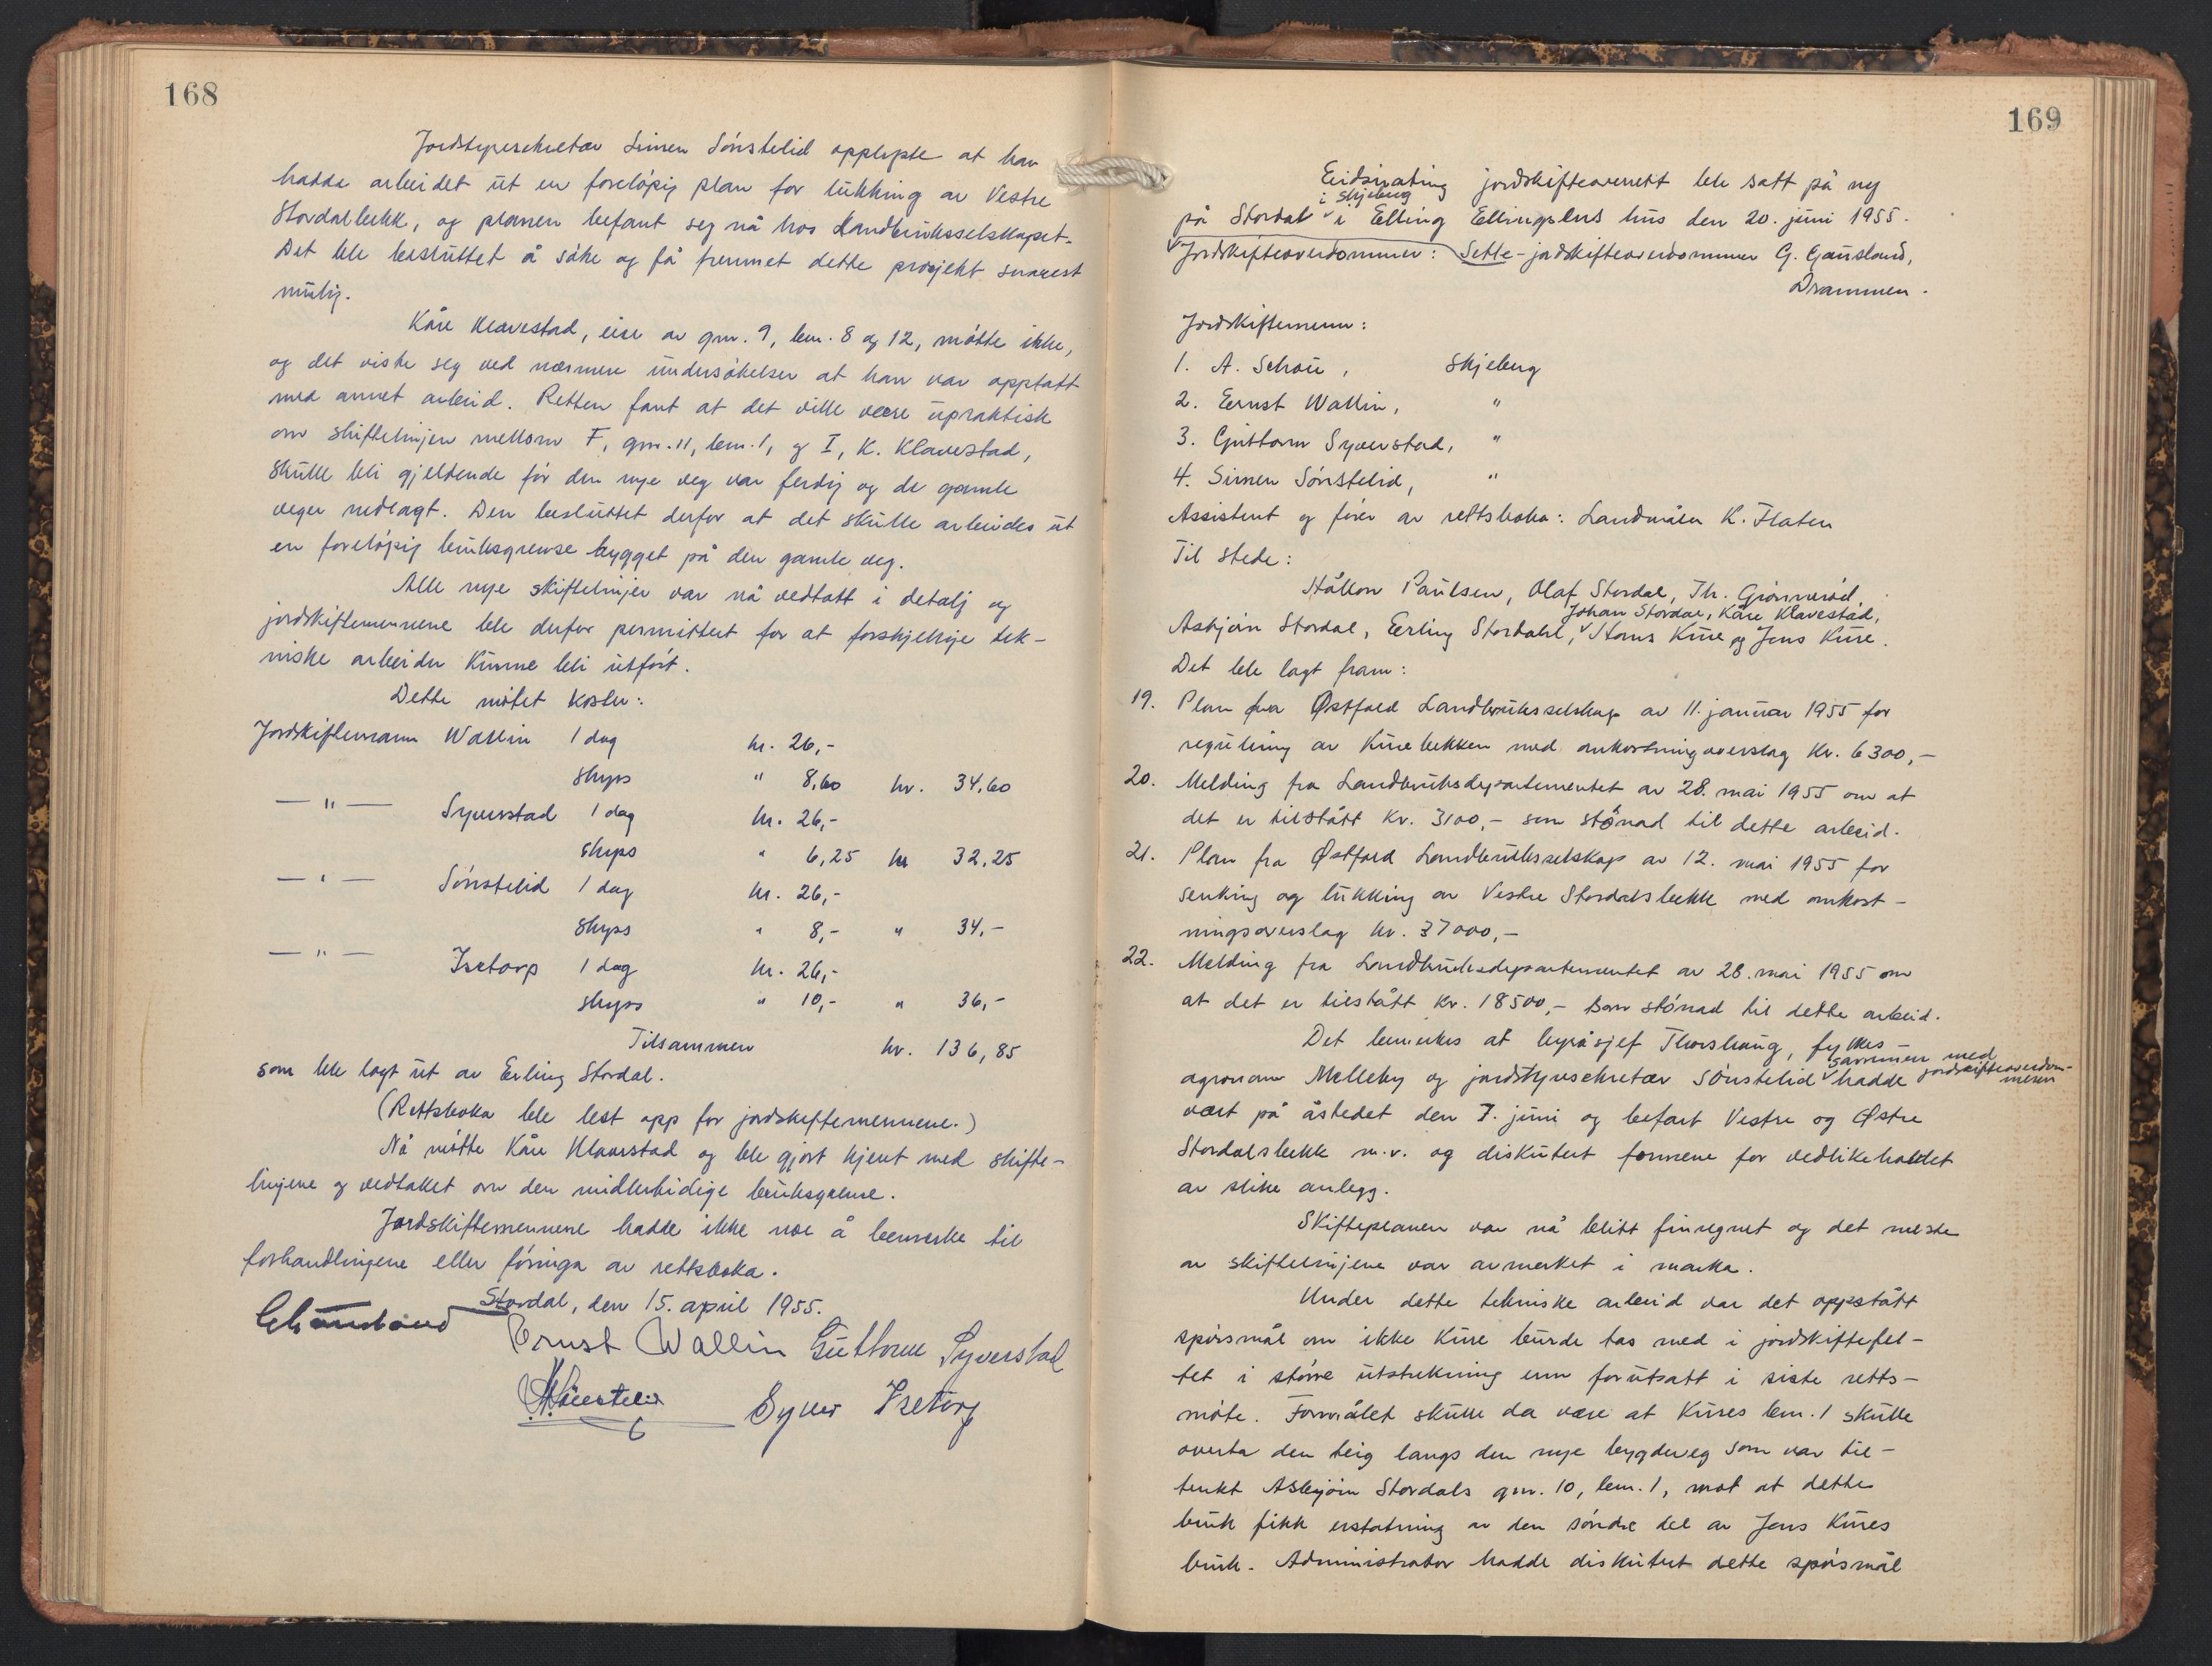 168
Jordstyresekretær Simen Sønstelid opplyste at han
hadde arbeidet ut en foreløpig plan for lukking av Vestre
Stordalbekk, og planen befant seg nå hos Landbruksselskapet.
Det ble besluttet å søke og få fremmet dette prosjekt snarest
mulig.
Kåre Klavestad, eier av gnr. 9, bnr. 8 og 12, møtte ikke,
og det viste seg ved nærmere undersøkelser at han var opptatt
med annet arbeid. Retten fant at det ville være upraktisk
om skiftelinjen mellom F, gnr. 11, bnr. 1, og I, K. Klavestad,
skulle bli gjeldende før den nye veg var ferdig og de gamle
veger nedlagt. Den besluttet derfor at det skulle arbeides ut
en foreløpig bruksgrense bygget på den gamle veg.
Alle nye skiftelinjer var nå vedtatt i detalj og
jordskiftemennene ble derfor permittert for at forskjellige tek-
niske arbeider kunne bli utført.
Dette møtet koster:
Jordskiftemann Wallin 1 dag kr. 26,-
skyss " 8,60 kr. 34,60
— " — Syverstad 1 dag kr. 26,-
skyss " 6,25 kr 32,25
— " — Sønstelid 1 dag kr. 26,-
skyss " 8,- " 34,-
— " — Isetorp 1 dag kr. 26,-
skyss " 10,- " 36,-
Tilsammen kr. 136,85
som ble lagt ut av Erling Stordal.
(Rettsboka ble lest opp for jordskiftemennene.)
Nå møtte Kåre Klavestad og ble gjort kjent med skifte-
linjene og vedtaket om den midlertidige bruksgrense.
Jordskiftemennene hadde ikke noe å bemerke til
forhandlingene eller føringa av rettsboka.
Stordal, den 15. april 1955.
Ernst Wallin Guttorm Syverstad
Sønstelid Syver Isetorp
169
Eidsivating jordskifteoverrett ble satt på ny
i Skjeberg
på Stordal i Elling Ellingsens hus den 20. juni 1955.
Jordskifteoverdommer: Sette-jordskifteoverdommer G. Gausland,
Drammen.
Jordskiftemenn:
1. A. Schou, Skjeberg
2. Ernst Wallin, "
3. Guttorm Syverstad, "
4. Simen Sønstelid, "
Assistent og fører av rettsboka: Landmåler K. Flaten
Til stede:
Håkon Paulsen, Olaf Stordal, Th. Grønnerød,
Johan Stordal, Kåre Klavestad,
Asbjørn Stordal, Erling Stordahl, Hans Kure og Jens Kure.
Det ble lagt fram:
19. Plan fra Østfold Landbruksselskap av 11. januar 1955 for
regulering av Kurebekken med omkostningsoverslag kr. 6300,-
20. Melding fra Landbruksdepartementet av 28. mai 1955 om at
det er tilstått kr. 3100,- som stønad til dette arbeid.
21. Plan fra Østfold Landbruksselskap av 12. mai 1955 for
senking og lukking av Vestre Stordalsbekk med omkost-
ningsoverslag kr. 37000,-
22. Melding fra Landbruksdepartementet av 28. mai 1955 om
at det er tilstått kr. 18500,- som stønad til dette arbeid.
Det bemerkes at byråsjef Thorshaug, fylkes-
sammen med jordskifteoverdom-
meren
agronom Melleby og jordstyresekretær Sønstelid hadde
vært på åstedet den 7. juni og befart Vestre og Østre
Stordalsbekk m.v. og diskutert formene for vedlikeholdet
av slike anlegg.
Skifteplanen var nå blitt finregnet og det meste
av skiftelinjene var avmerket i marka.
Under dette tekniske arbeid var det oppstått
spørsmål om ikke Kure burde tas med i jordskiftefel-
tet i større utstrekning enn forutsatt i siste retts-
møte. Formålet skulle da være at Kures bnr. 1 skulle
overta den teig langs den nye bygdeveg som var til-
tenkt Asbjørn Stordals gnr. 10, bnr. 1, mot at dette
bruk fikk erstatning av den søndre del av Jens Kures
bruk. Administrator hadde diskutert dette spørsmål